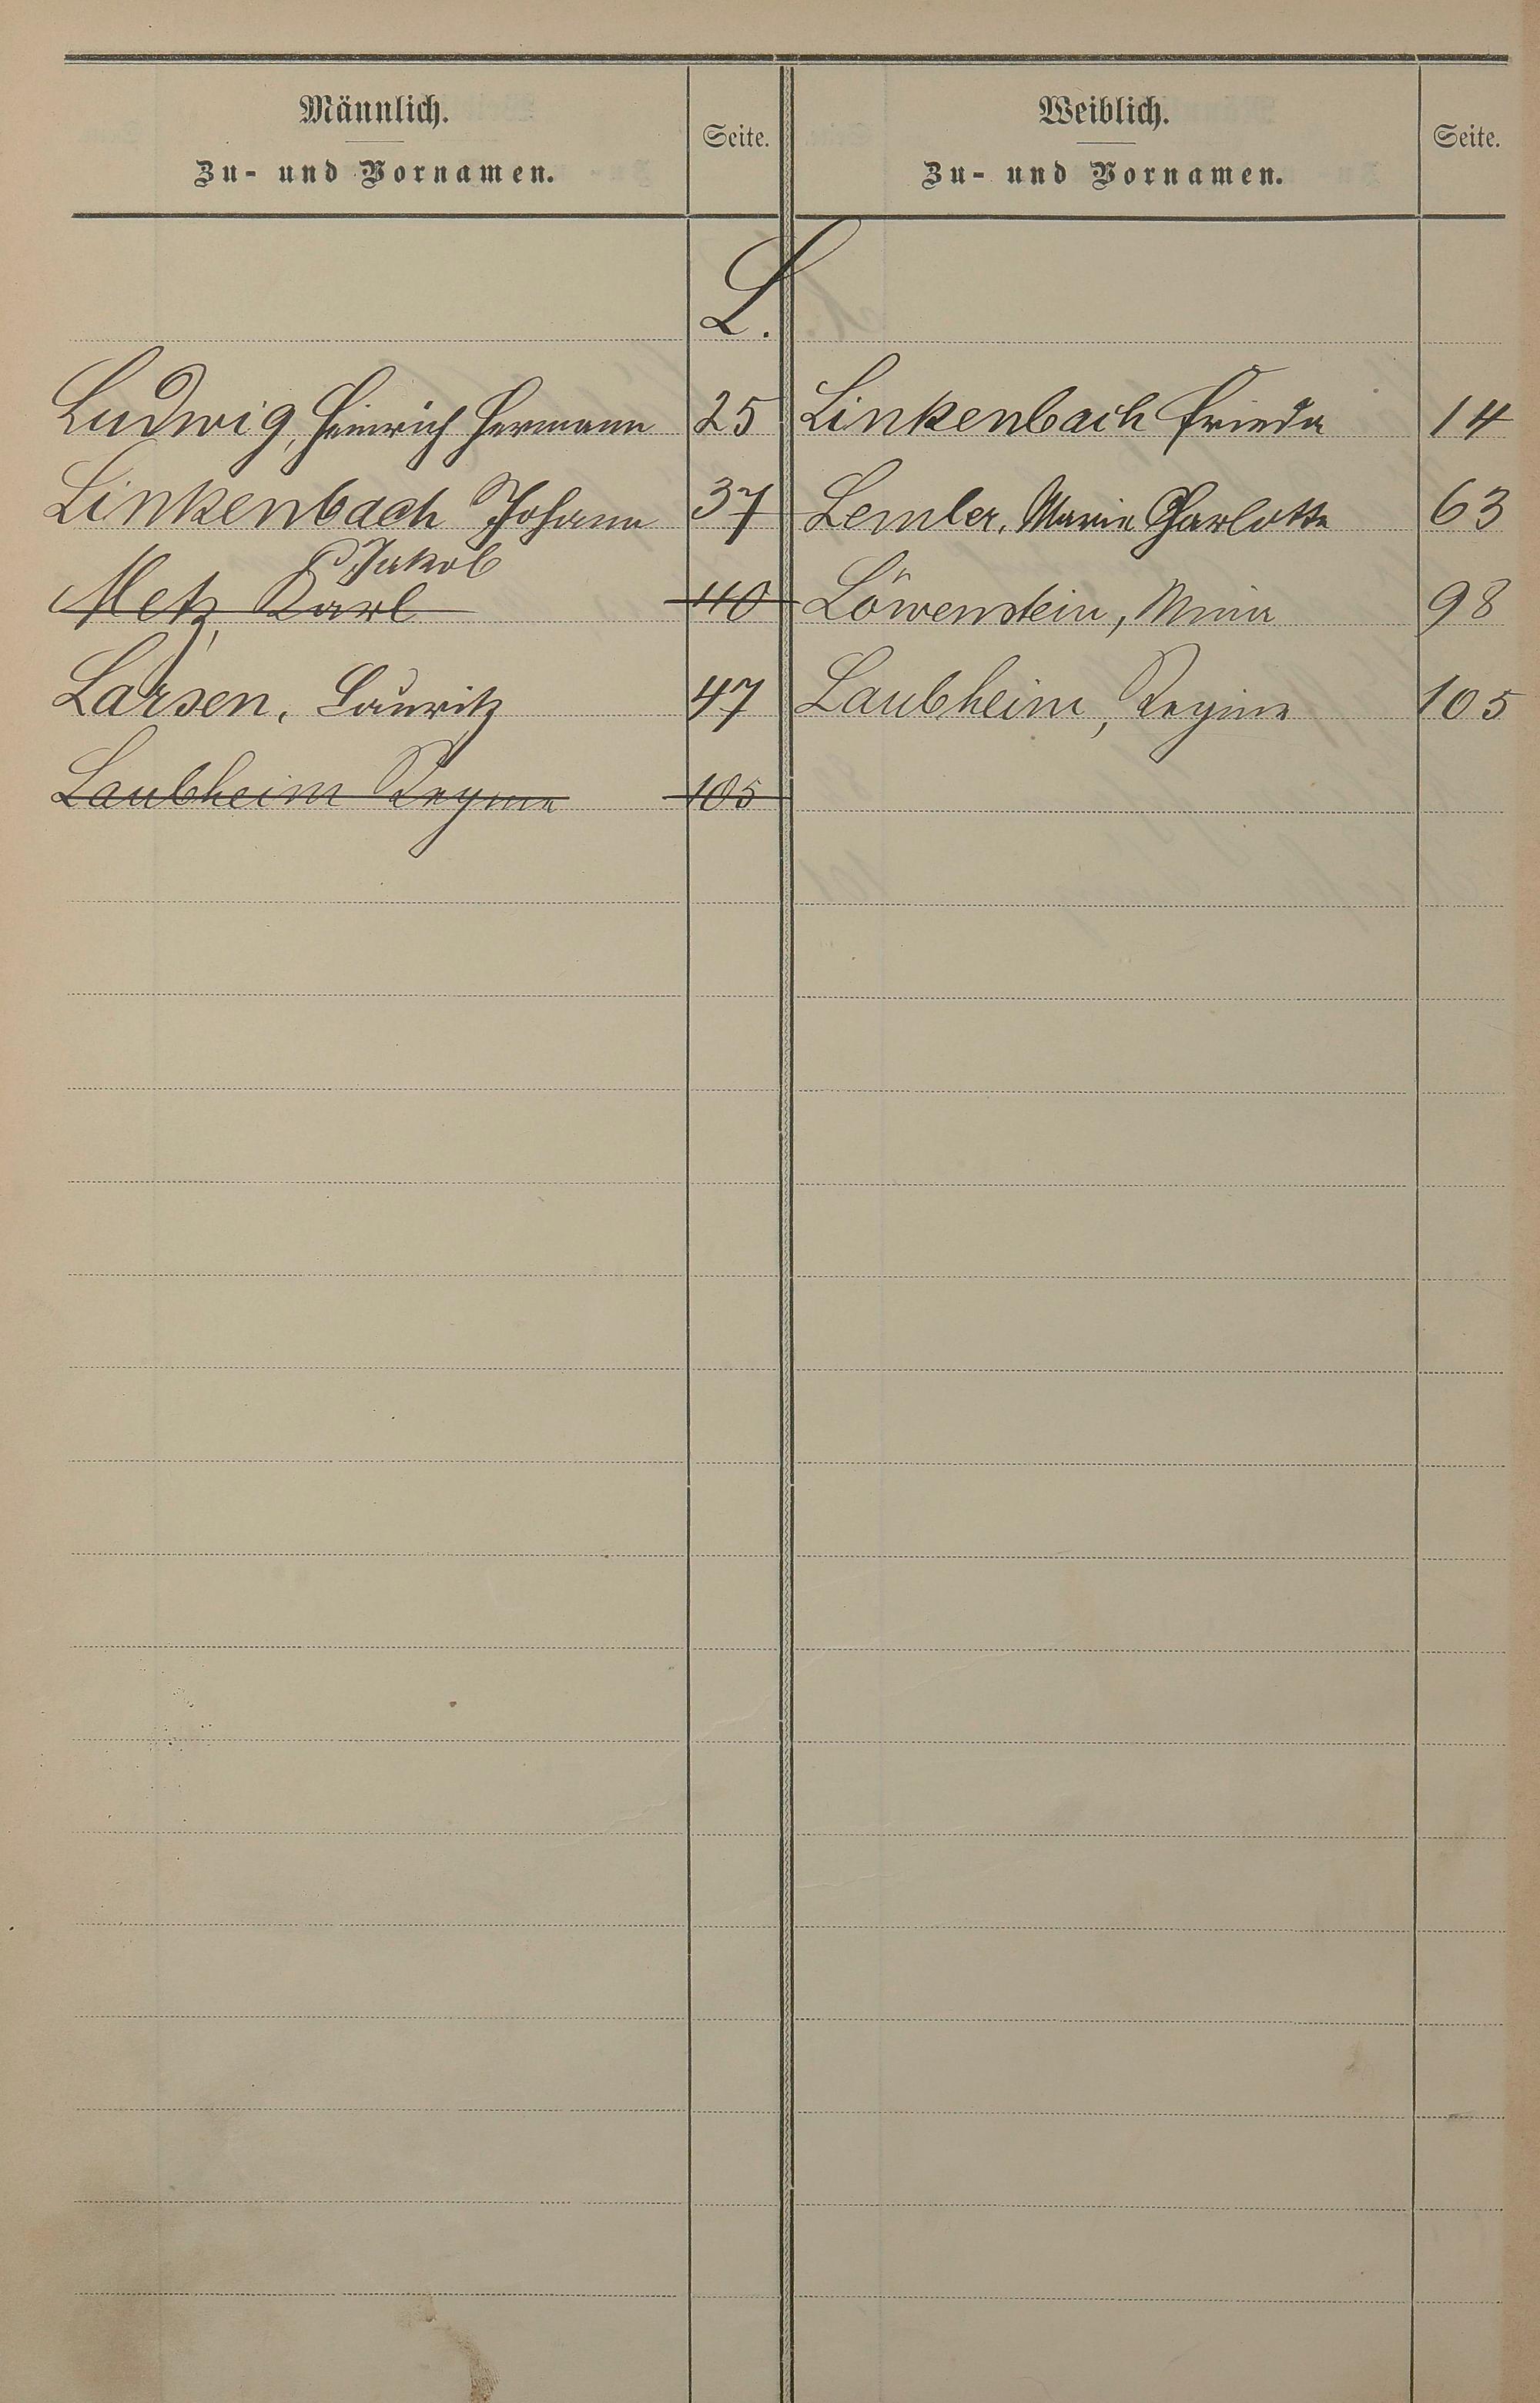 Männlich.
Zu- und Vornamen.
Seite.
Weiblich.
Zu- und Vornamen.
Seite.
L.
Ludwig, Heinrich Hermann 25 Linkenbach Frieda 14
Linkenbach Johann 37 Lemler, Marie Charlotte 63
Jakob
Metz, Karl 40 Löwenstein, Mina 98
Larsen, Lauritz 47 Laubheim, Regine 105
Laubheim Regine 105